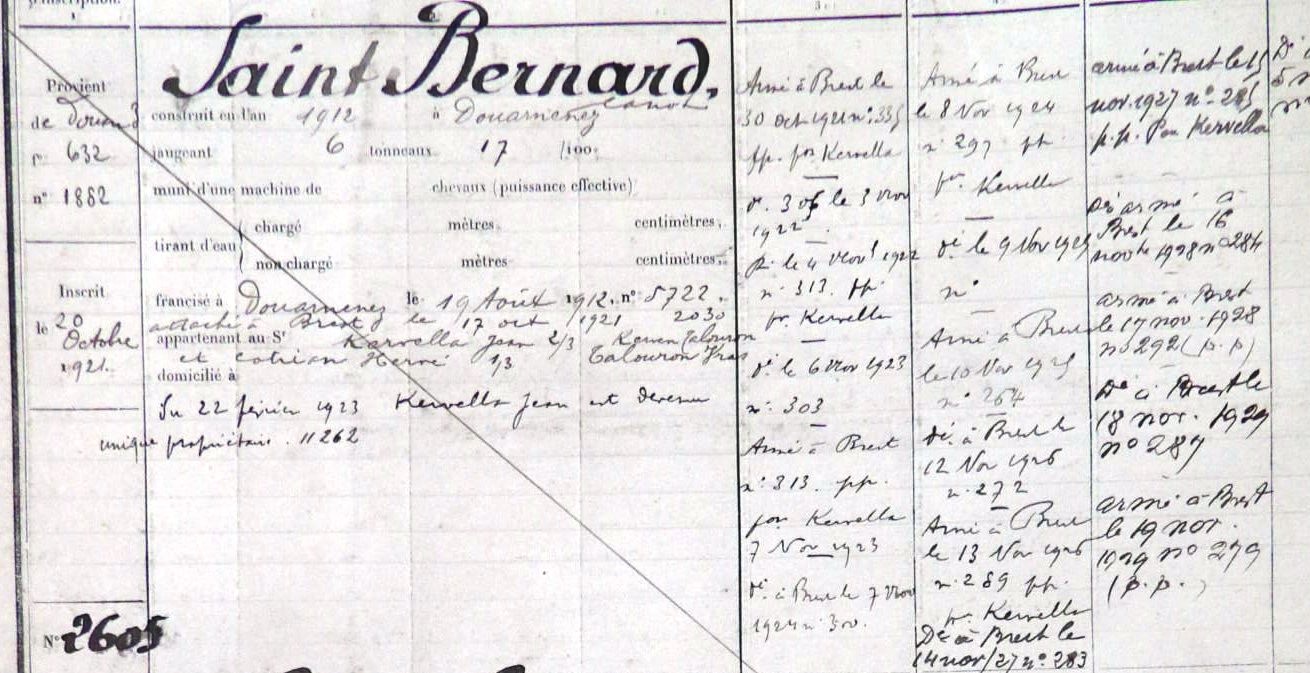 Saint Bernard,
Provient
de Douarn
f° 632
n° 1882
Inscrit
le 20
Octobre
1921.
N° 2605
construit en l'an 1912 à Douarnenez canot
jaugeant 6 tonneaux 17 /100
muni d'une machine de chevaux (puissance effective)
tirant d'eau
chargé mètres centimètres
non chargé mètres centimètres
francisé à Douarnenez le 19 Août 1912. n° 5722.
attaché à Brest le 17 oct 1921 2030
appartenant au Sr Kervella Jean 2/3
et Hervé 1/3
domicilié à
Du 22 février 1923 Kervella Jean est devenu
unique propriétaire. 11262
Armé à Brest le
30 oct 1921 n° 335
pp. pr Kervella
d. 305 le 3 Nov
1922.
le 4 Nov 1922
n° 313. pp.
pr. Kervella
d. le 6 Nov 1923
n° 303
Armé à Brest
n° 313. pp.
par Kervella
7 Nov 1923
d. à Brest le 7 Nov
1924 n° 300.
Armé à Brest
le 8 Nov 1924
n° 297 pp
pr. Kervella
d. le 9 Nov 1925
n°
Armé à Brest
le 10 Nov 1925
n° 264
Dé à Brest le
12 Nov 1926
n. 272
Armé à Brest
le 13 Nov 1926
n. 289 pp.
pr. Kervella
Dé à Brest le
14 nov/27 n° 283
armé à Brest le 15
nov. 1927 n° 285
p.p. Par Kervella
Désarmé à
Brest le 16
novbre 1928 n° 284
armé à Brest
le 17 nov. 1928
n° 292 (p.p)
Dé à Brest le
18 nov. 1929
n° 287
armé à Brest
le 19 nov.
1929 n° 279
(p.p.)